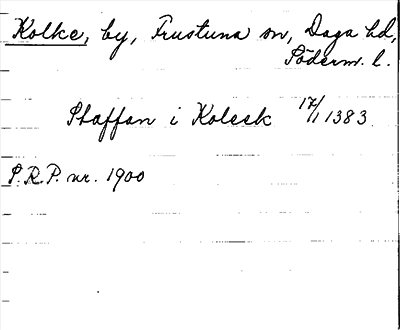 Kolke, by, Frustuna sn, Daga hd,
Söderm. l.
Staffan i Kolesk 17/1 1383.
S.R.P. nr. 1900